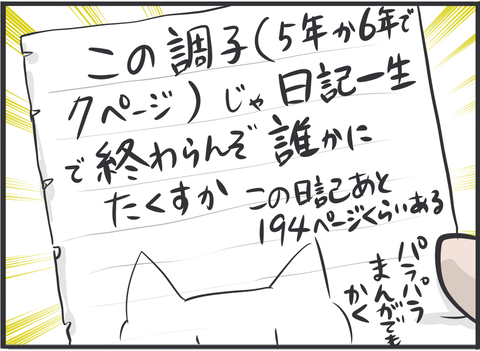 この調子(5年か6年で
7ページ)じゃ日記一生
で終わらんぞ誰かに
たくすか この日記あと
194ページくらいある
パラパラ
まんがでも
かく